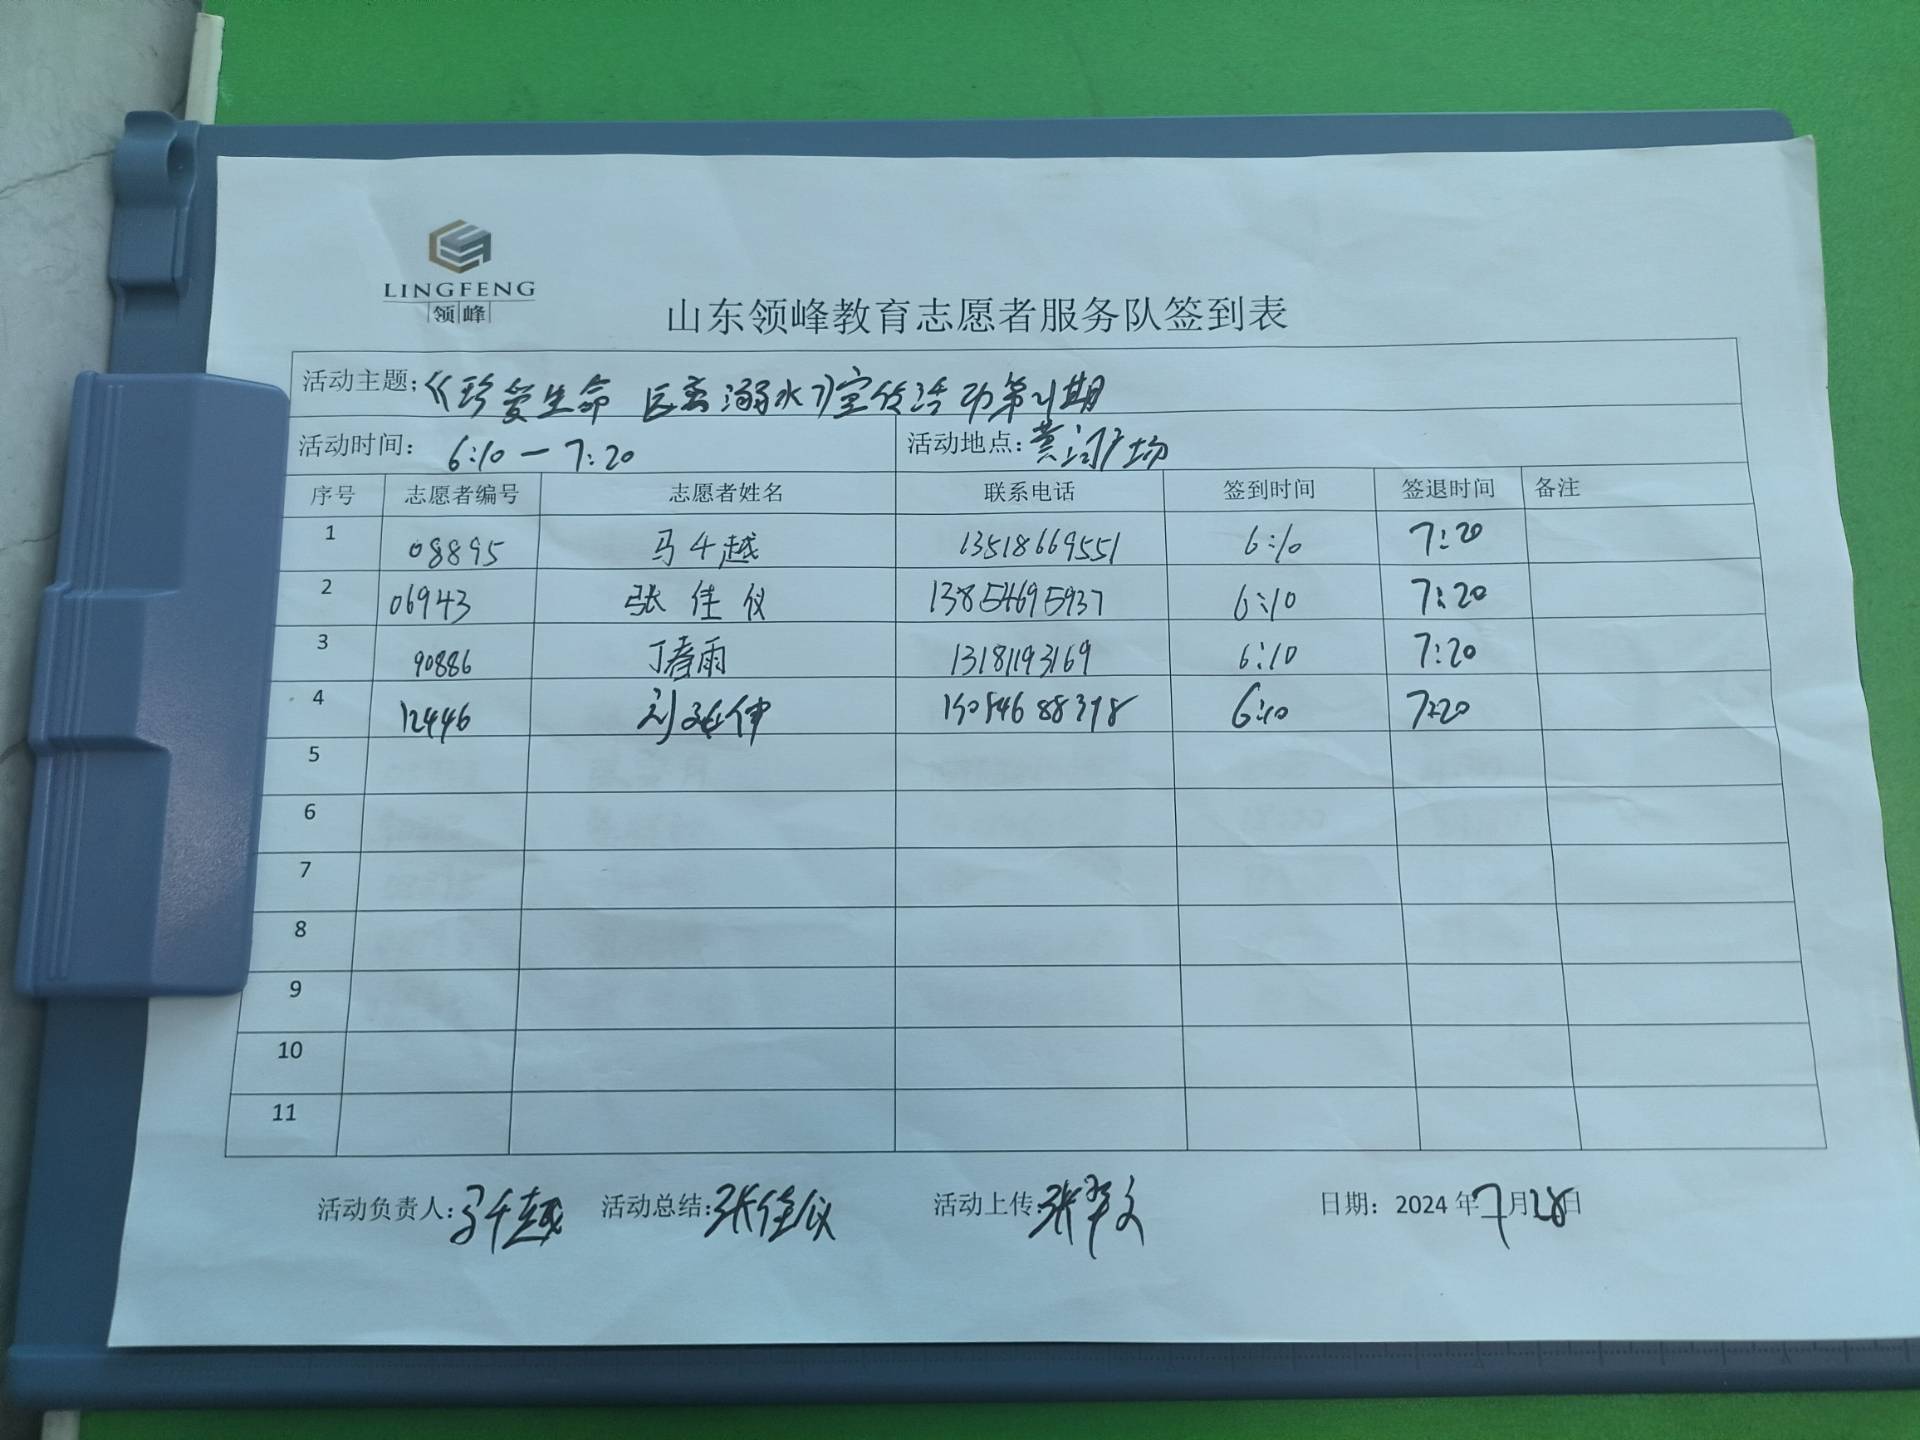 LINGFENG
领峰
山东领峰教育志愿者服务队签到表
活动主题：《珍爱生命 远离溺水》宣传活动第21期
活动时间： 6:10 — 7:20 活动地点：黄河广场
序号 志愿者编号 志愿者姓名 联系电话 签到时间 签退时间 备注
1 08895 马千越 13518669551 6:10 7:20
2 06943 张佳仪 13854695937 6:10 7:20
3 90886 丁春雨 13181193169 6:10 7:20
4 12446 刘延伸 6:10 7:20
5
6
7
8
9
10
11
活动负责人：马千越 活动总结：张佳仪 活动上传：张翠文 日期： 2024 年 7 月 28 日